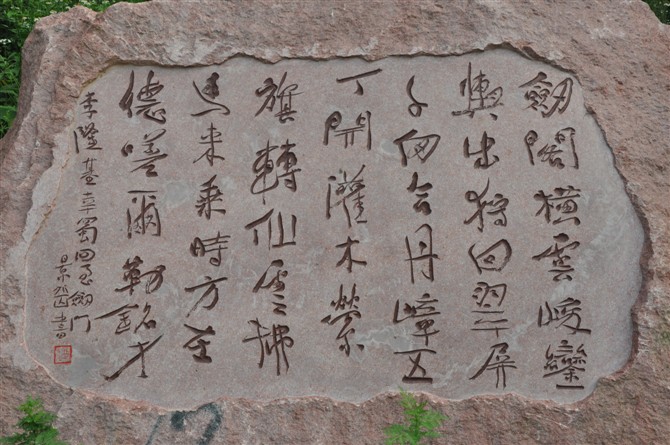 劔閣橫雲峻鑾
輿出狩回翠屏
千仞合丹嶂五
丁開灌木縈
旗轉仙雲拂
馬来乘時方在
德嗟爾勒銘才
李隆基幸蜀回至劔门
景書